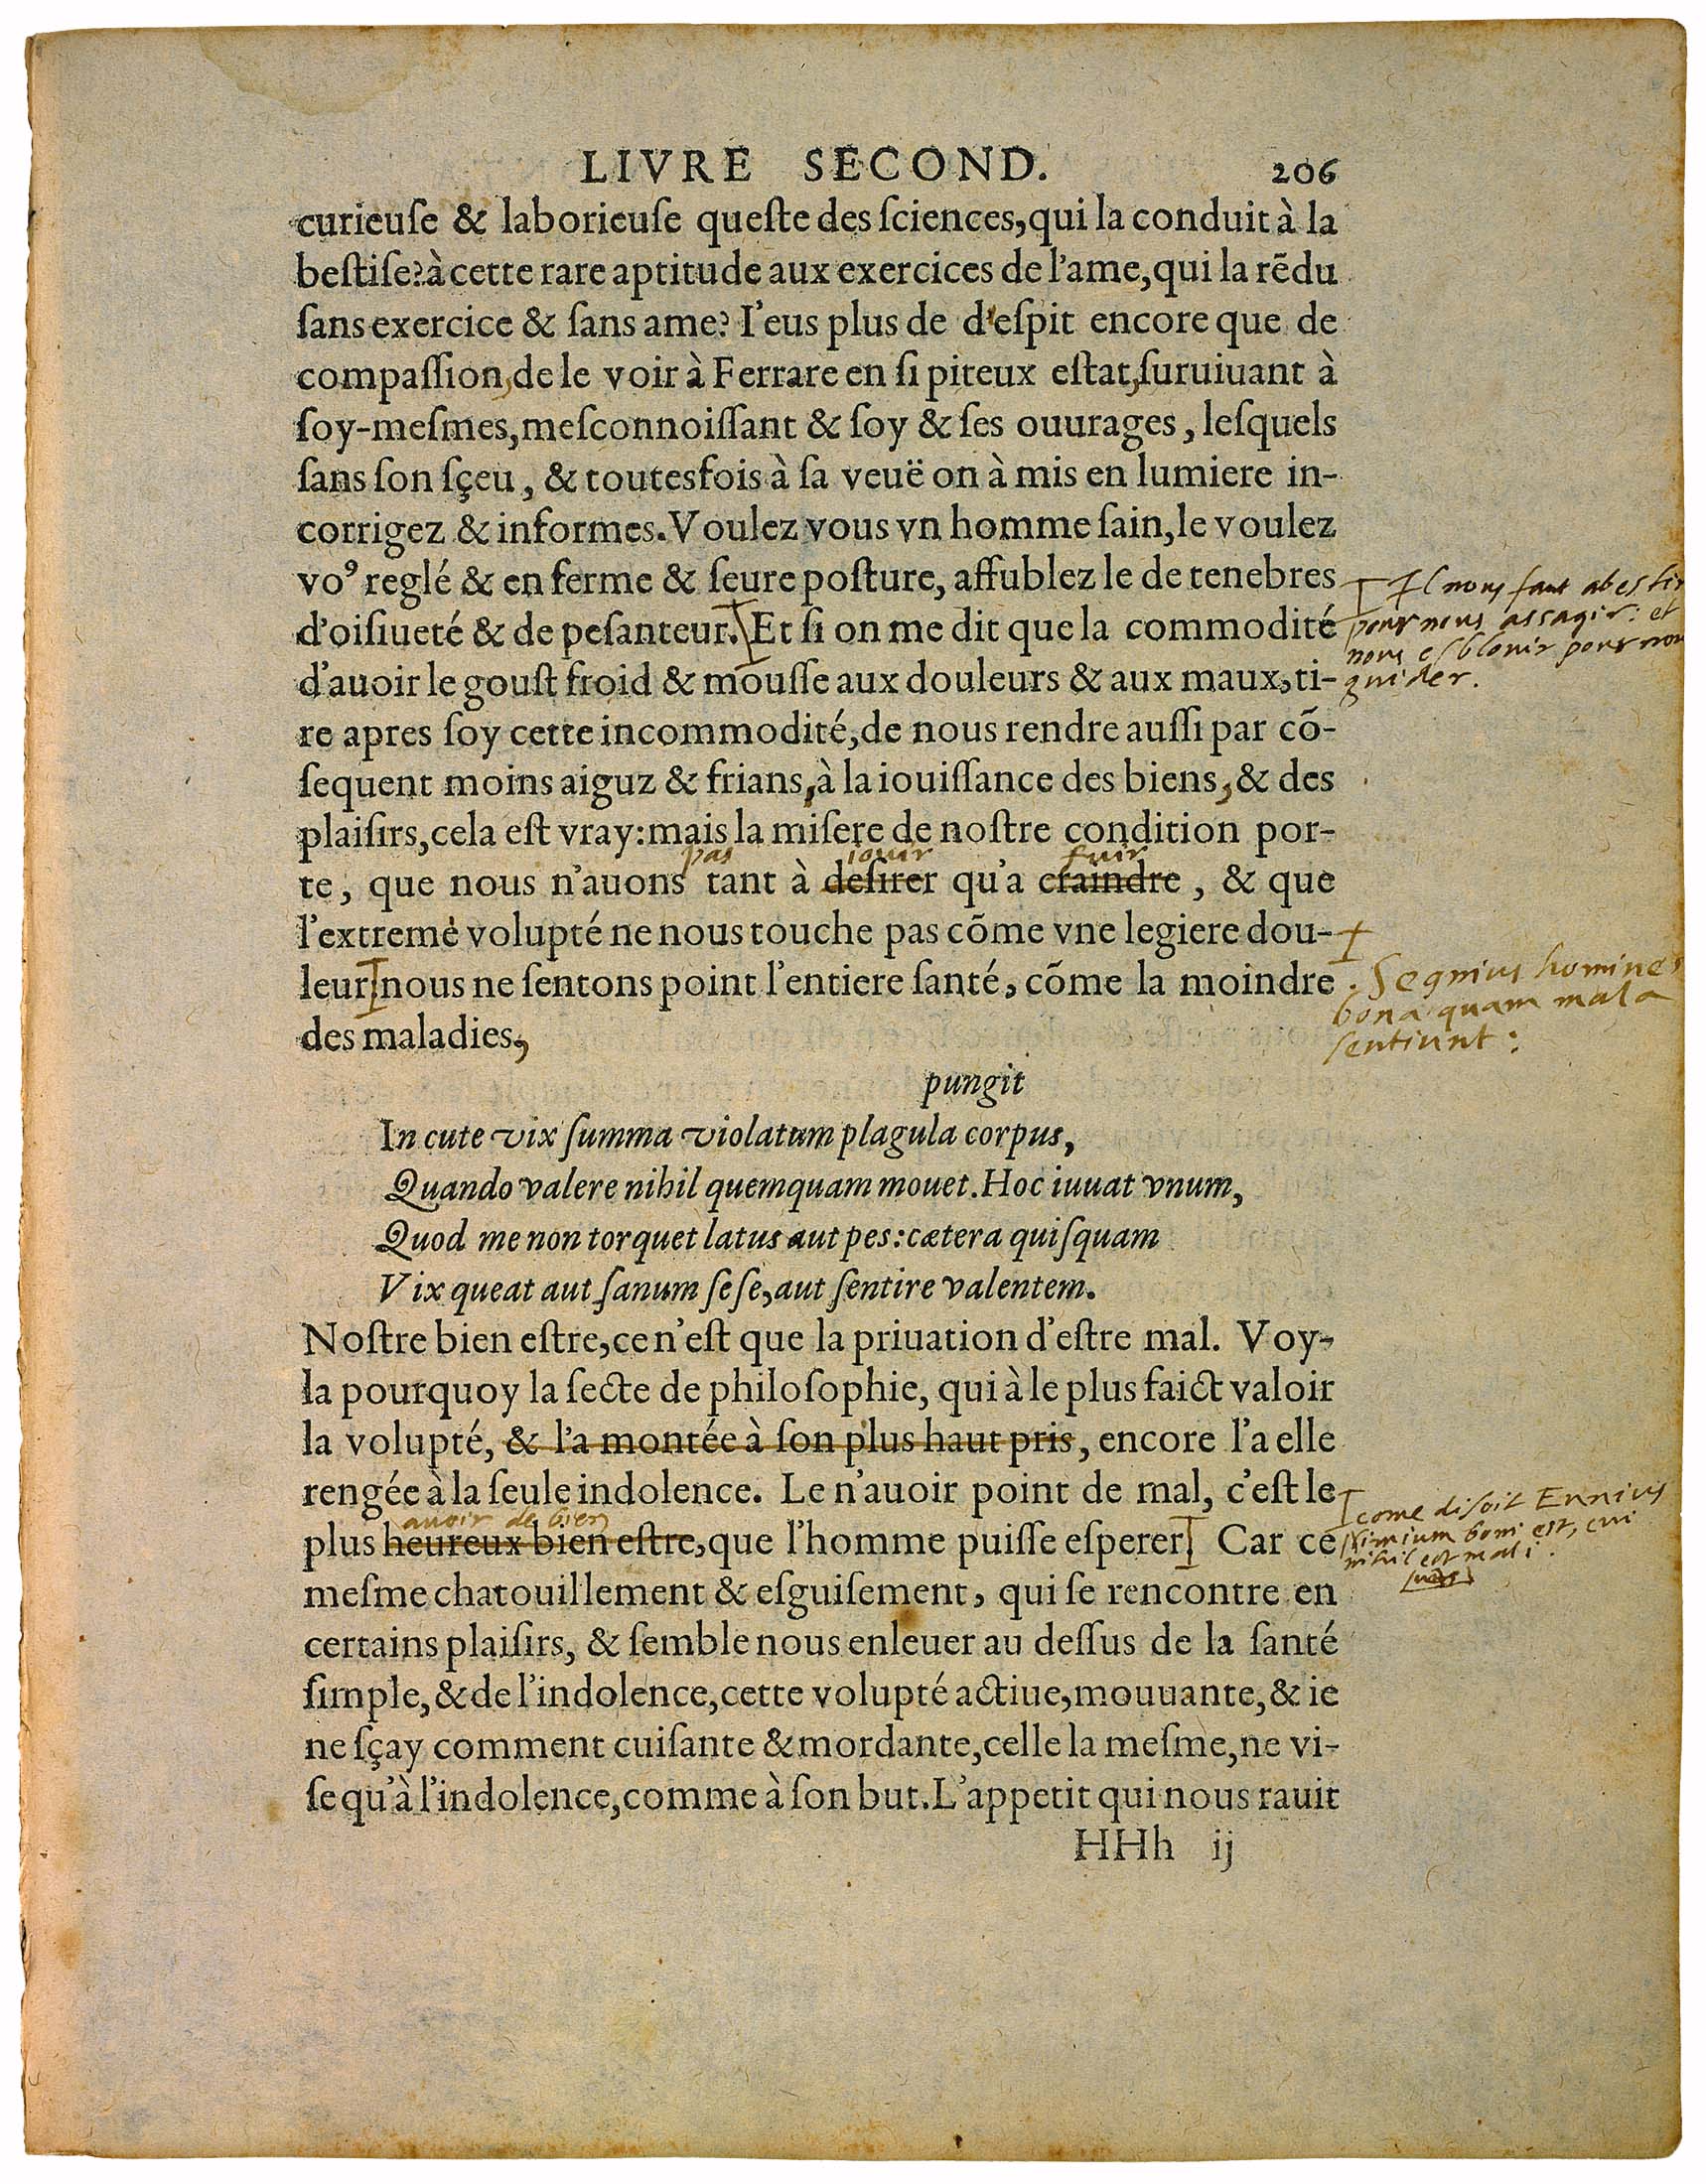 LIVRE SECOND. 206
curieuſe & laborieuſe queſte des ſciences, qui la conduit à la
beſtiſe? à cette rare aptitude aux exercices de l'ame, qui la rēdu
ſans exercice & ſans ame? I'eus plus de d'eſpit encore que de
compaſſion, de le voir à Ferrare en ſi piteux eſtat, ſuruiuant à
ſoy-meſmes, meſconnoiſſant & ſoy & ſes ouurages, leſquels
ſans ſon ſçeu, & toutesfois à ſa veuë on à mis en lumiere in-
corrigez & informes. Voulez vous vn homme ſain, le voulez
voꝰ reglé & en ferme & ſeure poſture, affublez le de tenebres
d'oiſiueté & de peſanteur. Et ſi on me dit que la commodité
Il nous faut abestir
pour nous assagir: et
nous esblouir pour nou
guider.
d'auoir le gouſt froid & mouſſe aux douleurs & aux maux, ti-
re apres ſoy cette incommodité, de nous rendre auſſi par cō-
ſequent moins aiguz & frians, à la iouiſſance des biens, & des
plaiſirs, cela eſt vray: mais la miſere de noſtre condition por-
pas iouir fuir
te, que nous n'auons tant à deſirer qu'a craindre, & que
l'extreme volupté ne nous touche pas cōme vne legiere dou-
leur nous ne ſentons point l'entiere ſanté, cōme la moindre
Segnius homines
bona quam mala
sentiunt:
des maladies,
pungit
In cute vix ſumma violatum plagula corpus,
Quando valere nihil quemquam mouet. Hoc iuuat vnum,
Quod me non torquet latus aut pes: cætera quiſquam
Vix queat aut ſanum ſeſe, aut ſentire valentem.
Noſtre bien eſtre, ce n'eſt que la priuation d'eſtre mal. Voy-
la pourquoy la ſecte de philoſophie, qui à le plus faict valoir
la volupté, & l'a montée à ſon plus haut pris, encore l'a elle
rengée à la ſeule indolence. Le n'auoir point de mal, c'eſt le
auoir de bien
plus heureux bien eſtre, que l'homme puiſſe eſperer Car ce
come disoit Ennius
Nimium boni est, cui
nihil est mali.
meſme chatouillement & eſguiſement, qui ſe rencontre en
certains plaiſirs, & ſemble nous enleuer au deſſus de la ſanté
ſimple, & de l'indolence, cette volupté actiue, mouuante, & ie
ne ſçay comment cuiſante & mordante, celle la meſme, ne vi-
ſe qu'à l'indolence, comme à ſon but. L'appetit qui nous rauit
HHh ij